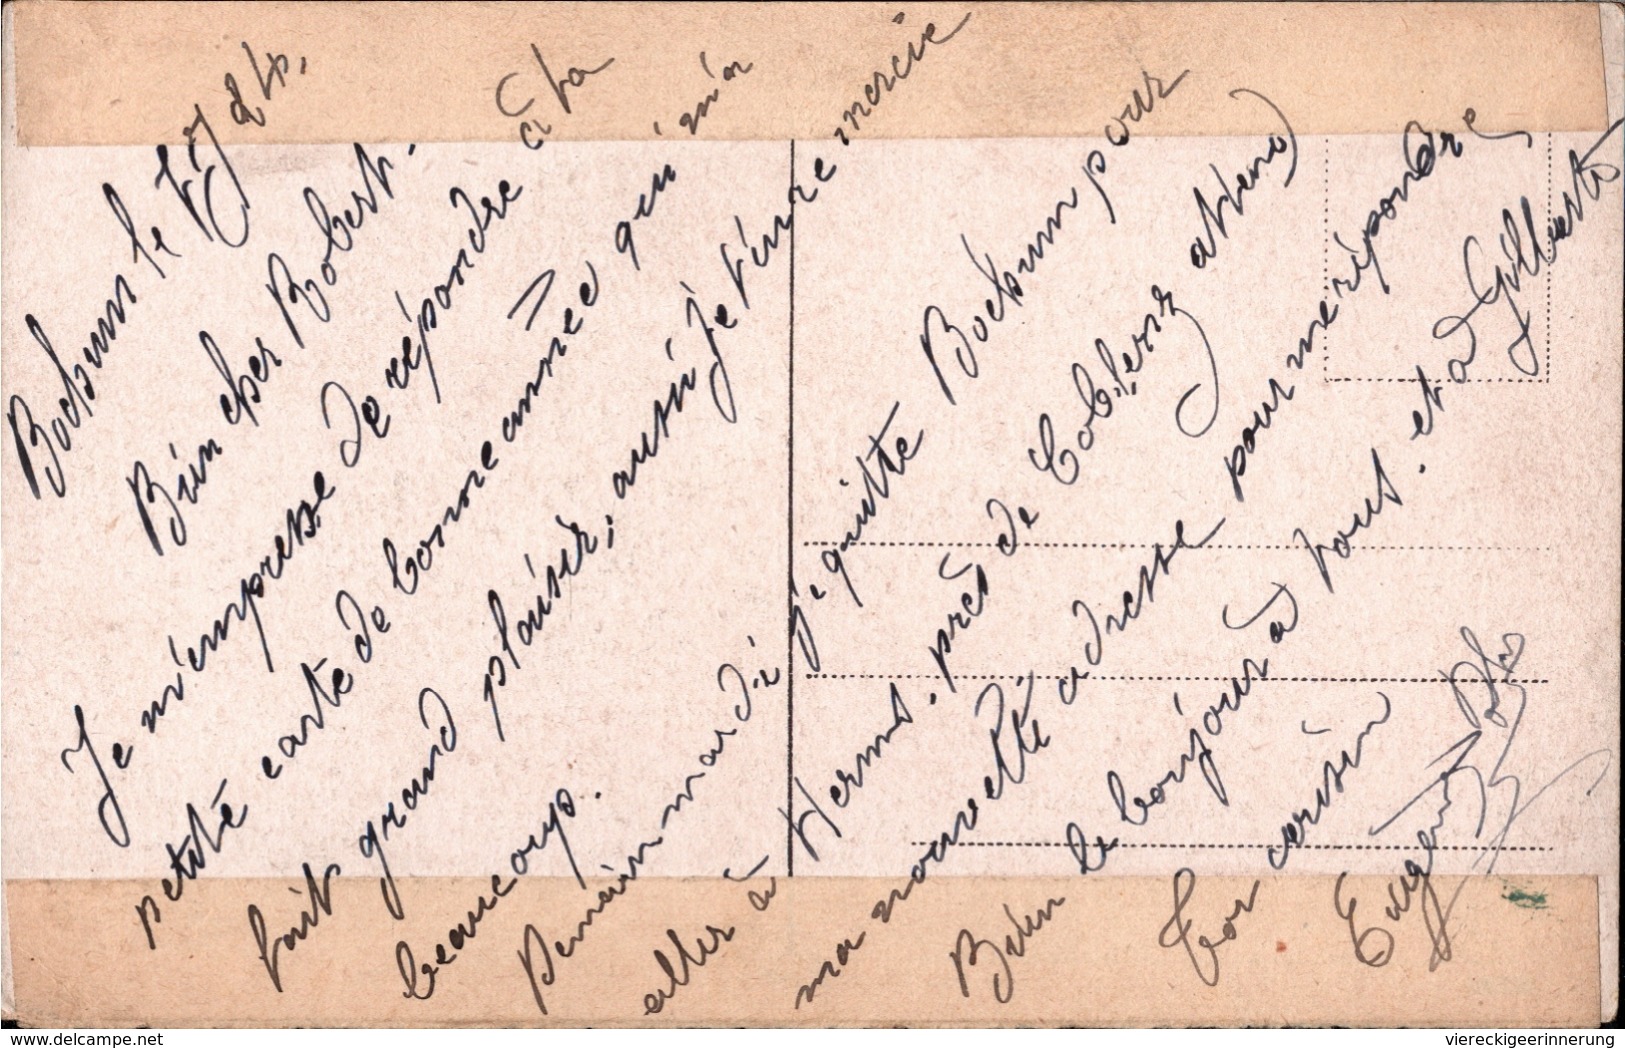 Bochum le 24.
Bien cher Robert.
Je m'empresse de répondre à ta
petite carte de bonne année qui m'a
fait grand plaisir, aussi je t'en remercie
beaucoup.
Demain mardi je quitte Bochum pour
aller à Herms. près de Coblenz attend
ma nouvelle adresse pour me répondre
Bien le bonjour à tous. et à Gilberte
Ton cousin
Eugène
viereckigeerinnerung